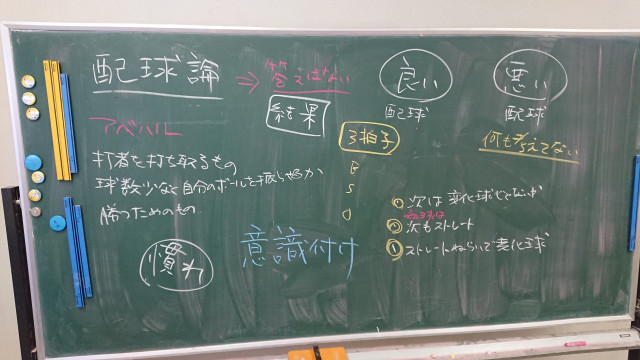 配球論
⇒ 答えはない
結果
良い
配球
悪い
配球
何も考えてない
アベハル
3拍子
B
S
O
打者を打ち取るもの
球数少なく自分のボールを振らせるか
勝つためのもの
慣れ
意識付け
次は変化球じゃないか
次もストレート
① ストレートねらいで変化球